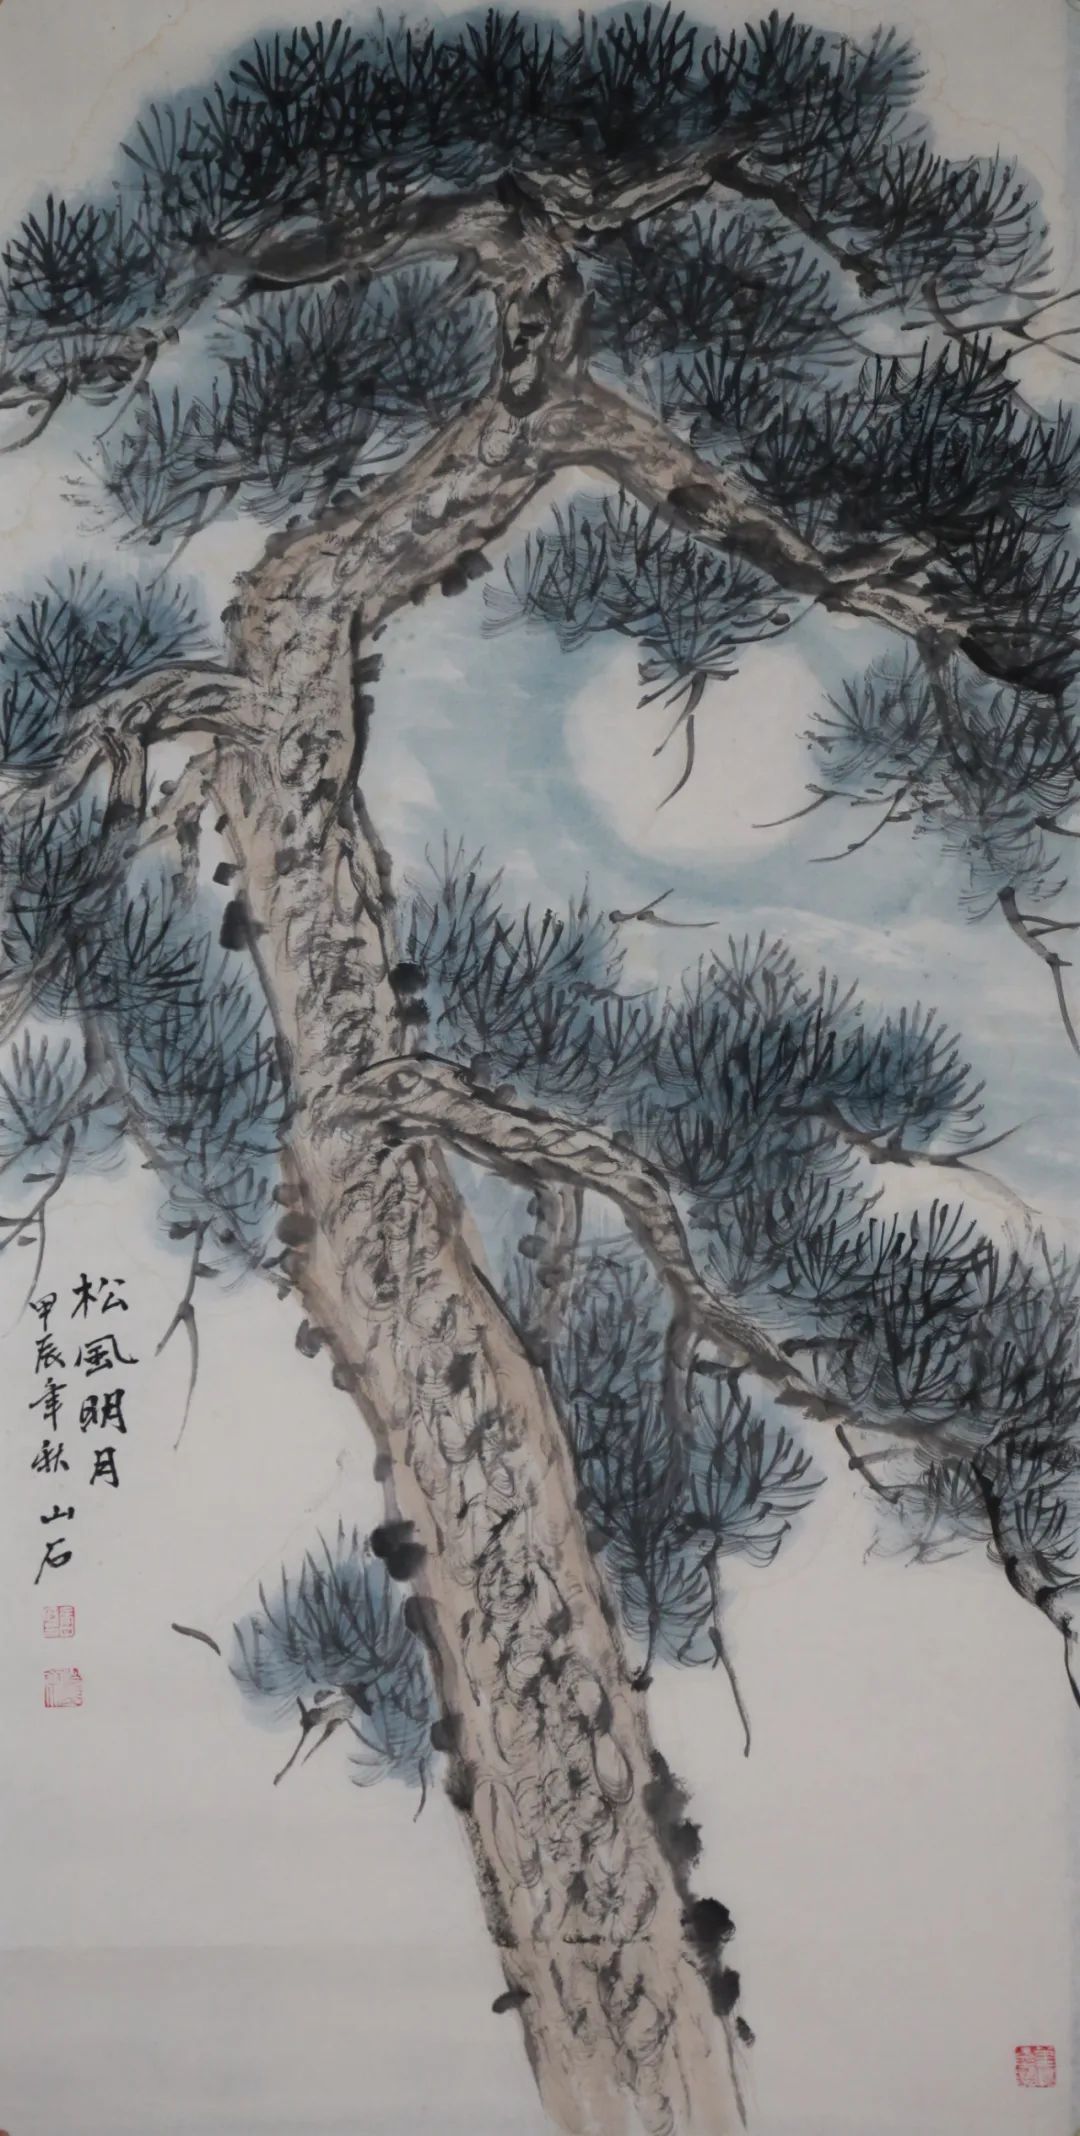 松风明月
甲辰年秋 山石